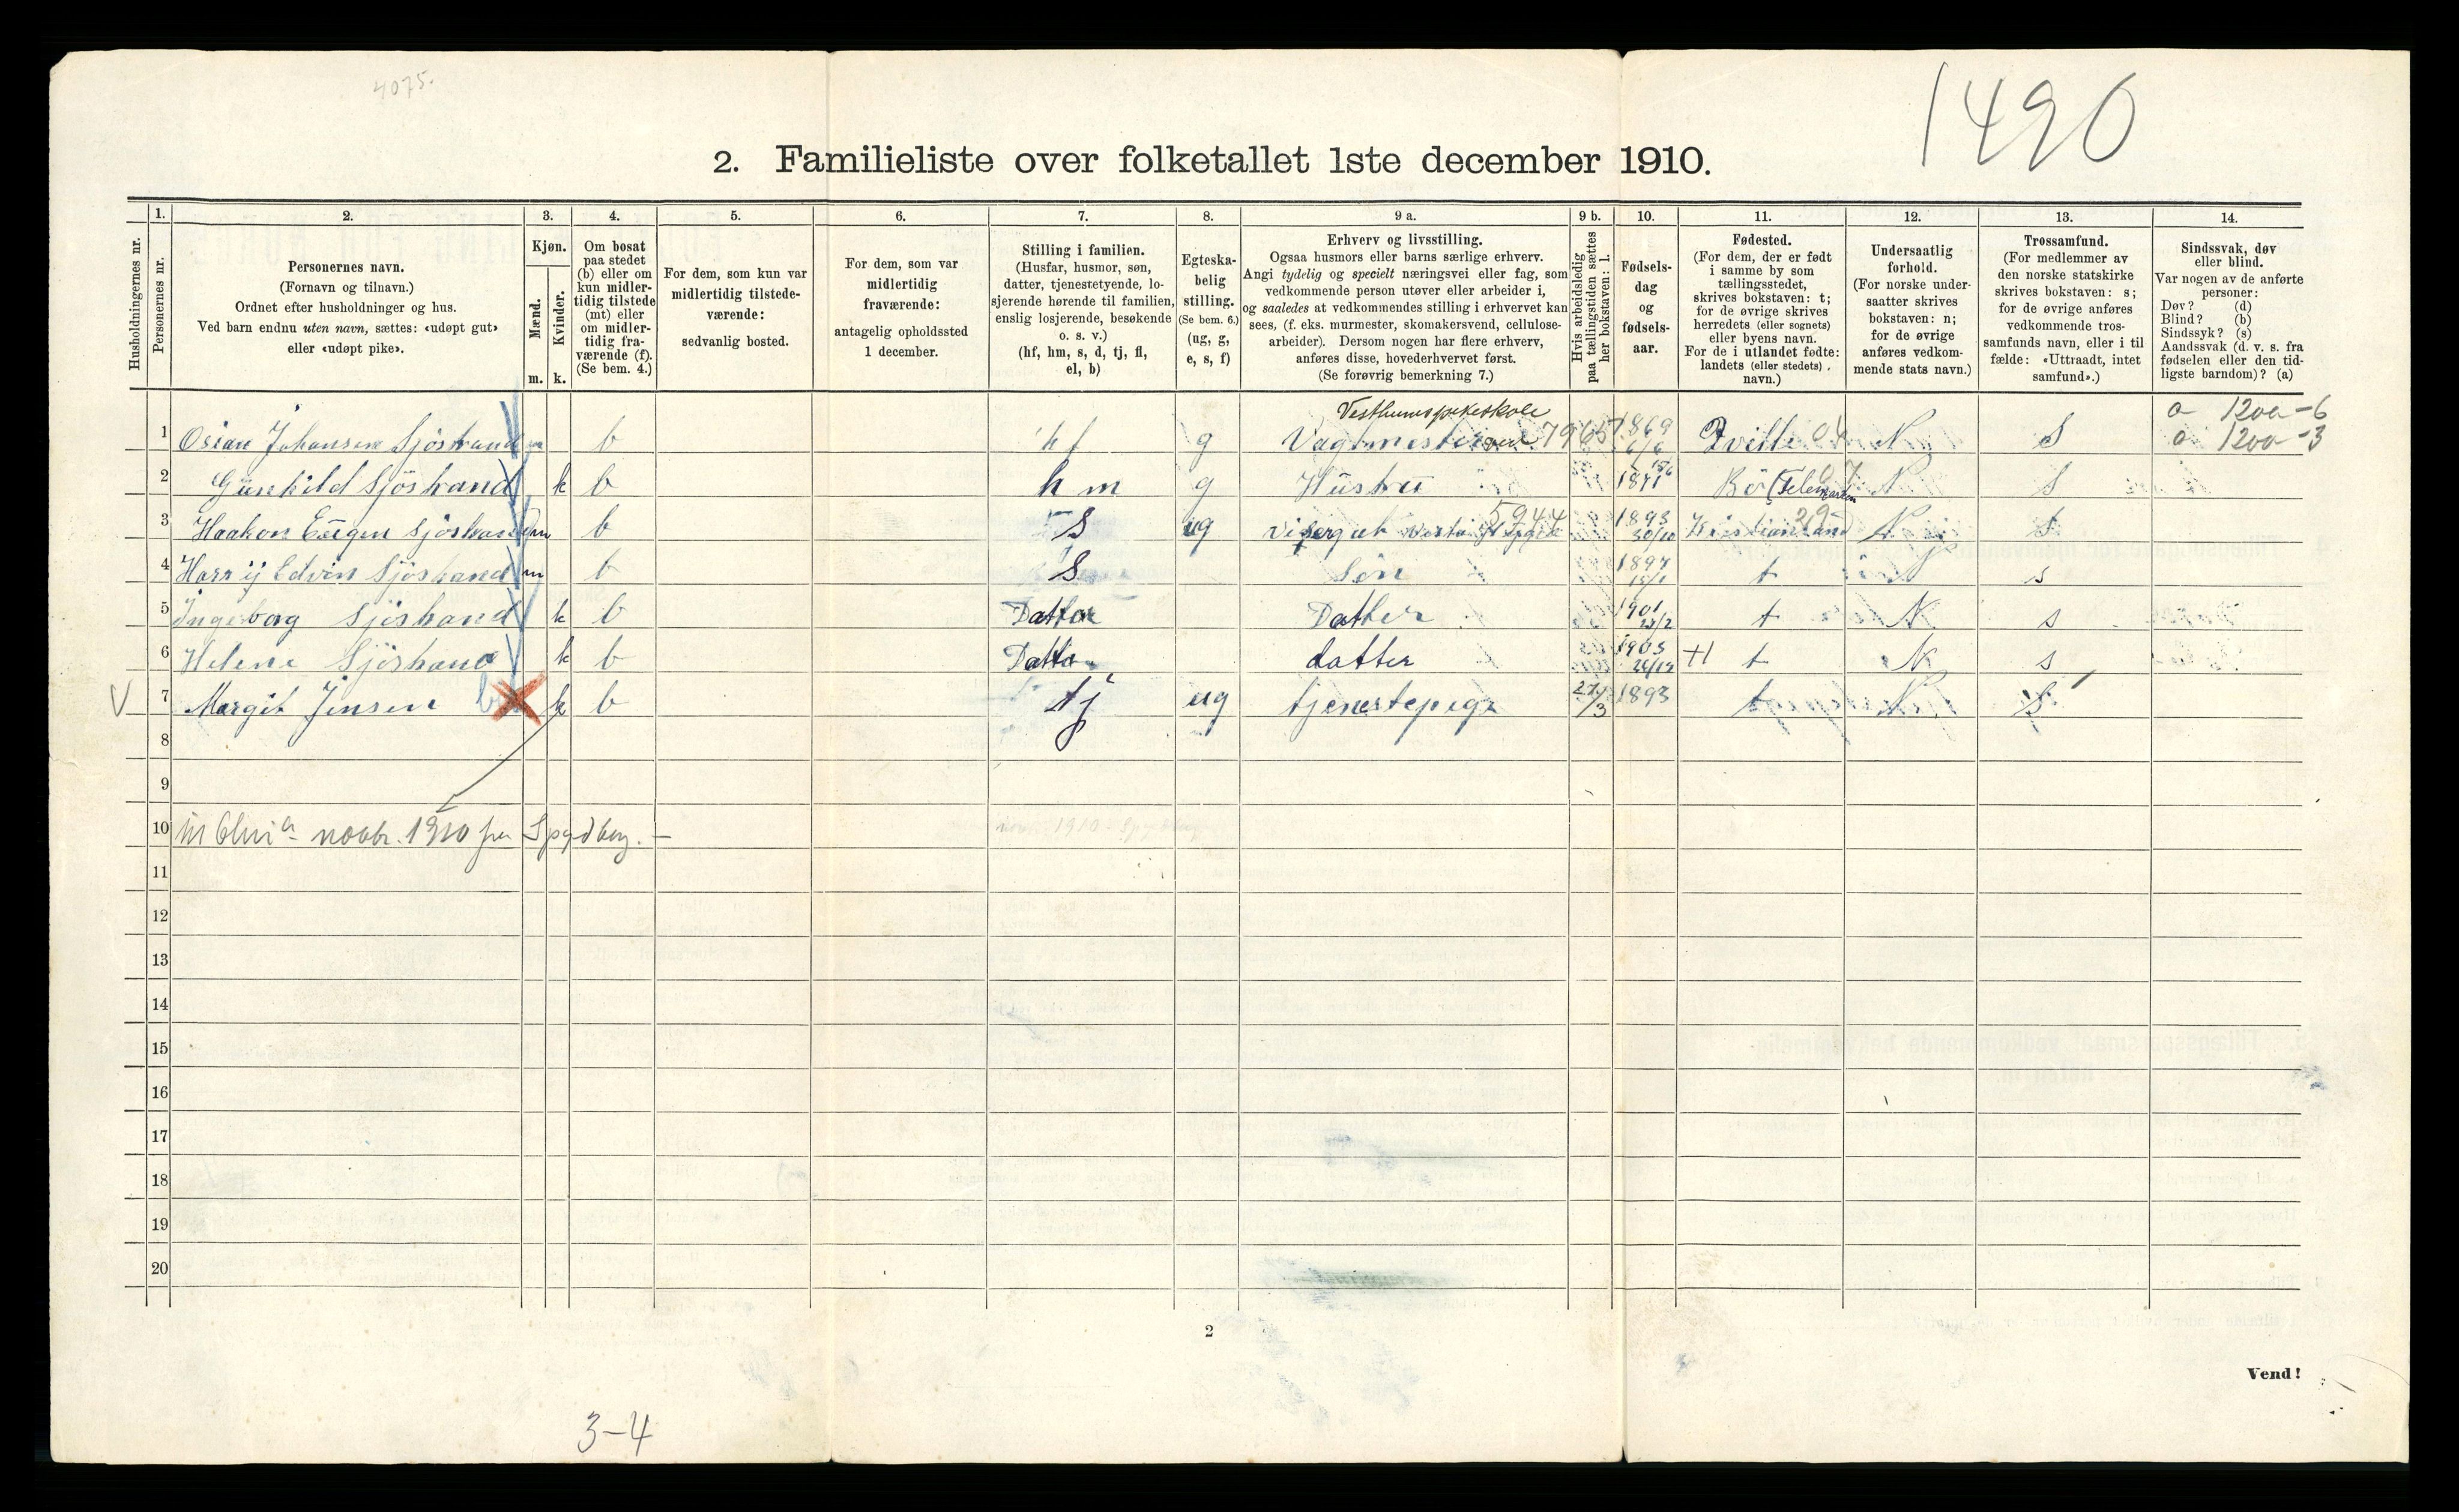 4075.
1490
2. Familieliste over folketallet 1ste december 1910.
Husholdningernes nr.
1.
Personernes nr.
2.
Personernes navn.
(Fornavn og tilnavn.)
Ordnet efter husholdninger og hus.
Ved barn endnu uten navn, sættes: «udøpt gut»
eller «udøpt pike».
3.
Kjøn.
Mænd.
m.
Kvinder.
k.
4.
Om bosat
paa stedet
(b) eller om
kun midler-
tidig tilstede
(mt) eller
om midler-
tidig fra-
værende (f).
(Se bem. 4.)
5.
For dem, som kun var
midlertidig tilstede-
værende:
sedvanlig bosted.
6.
For dem, som var
midlertidig
fraværende:
antagelig opholdssted
1 december.
7.
Stilling i familien.
(Husfar, husmor, søn,
datter, tjenestetyende, lo-
sjerende hørende til familien,
enslig losjerende, besøkende
o. s. v.)
(hf, hm, s, d, tj, fl,
el, b)
8.
Egteska-
belig
stilling.
(Se bem. 6.)
(ug, g,
e, s, f)
9 a.
Erhverv og livsstilling.
Ogsaa husmors eller barns særlige erhverv.
Angi tydelig og specielt næringsvei eller fag, som
vedkommende person utøver eller arbeider i,
og saaledes at vedkommendes stilling i erhvervet kan
sees, (f. eks. murmester, skomakersvend, cellulose-
arbeider). Dersom nogen har flere erhverv,
anføres disse, hovederhvervet først.
(Se forøvrig bemerkning 7.)
9 b.
Hvis arbeidsledig
paa tællingstiden sættes
her bokstaven: l.
10.
Fødsels-
dag
og
fødsels-
aar.
11.
Fødested.
(For dem, der er født
i samme by som
tællingsstedet,
skrives bokstaven: t;
for de øvrige skrives
herredets (eller sognets)
eller byens navn.
For de i utlandet fødte:
landets (eller stedets)
navn.)
12.
Undersaatlig
forhold.
(For norske under-
saatter skrives
bokstaven: n;
for de øvrige
anføres vedkom-
mende stats navn.)
13.
Trossamfund.
(For medlemmer av
den norske statskirke
skrives bokstaven: s;
for de øvrige anføres
vedkommende tros-
samfunds navn, eller i til
fælde: «Uttraadt, intet
samfund».)
14.
Sindssvak, døv
eller blind.
Var nogen av de anførte
personer:
Døv? (d)
Blind? (b)
Sindssyk? (s)
Aandssvak (d. v. s. fra
fødselen eller den tid-
ligste barndom)? (a)
Vestheimspikeskole
1200-6
1 Johansen Sjöstrand m b hf g Vagtmester 1869 6/6 N S 1200-3
2 Gunhild Sjöstrand k b hm g Hustru 1871 Bö (Telemarken N S
3 Haakon Eugen Sjöstrand m b S ug Visergut 5944 1893 30/10 Kristiansand N S
4 Harry Edvin Sjöstrand m b S Sön 1897 t s
5 Ingeborg Sjöstrand k b Datter Datter 1901 t N s
6 Helene Sjöstrand k b Datter datter 1905 t N s
V 7 Margit Jensen k b tj ug tjenestepige 27/3 1893 t N S
8
9
10 novbr. 1910 fra Spydberg. —
11
12
13
14
15
16
17
18
19
20
2
Vend!
3-4